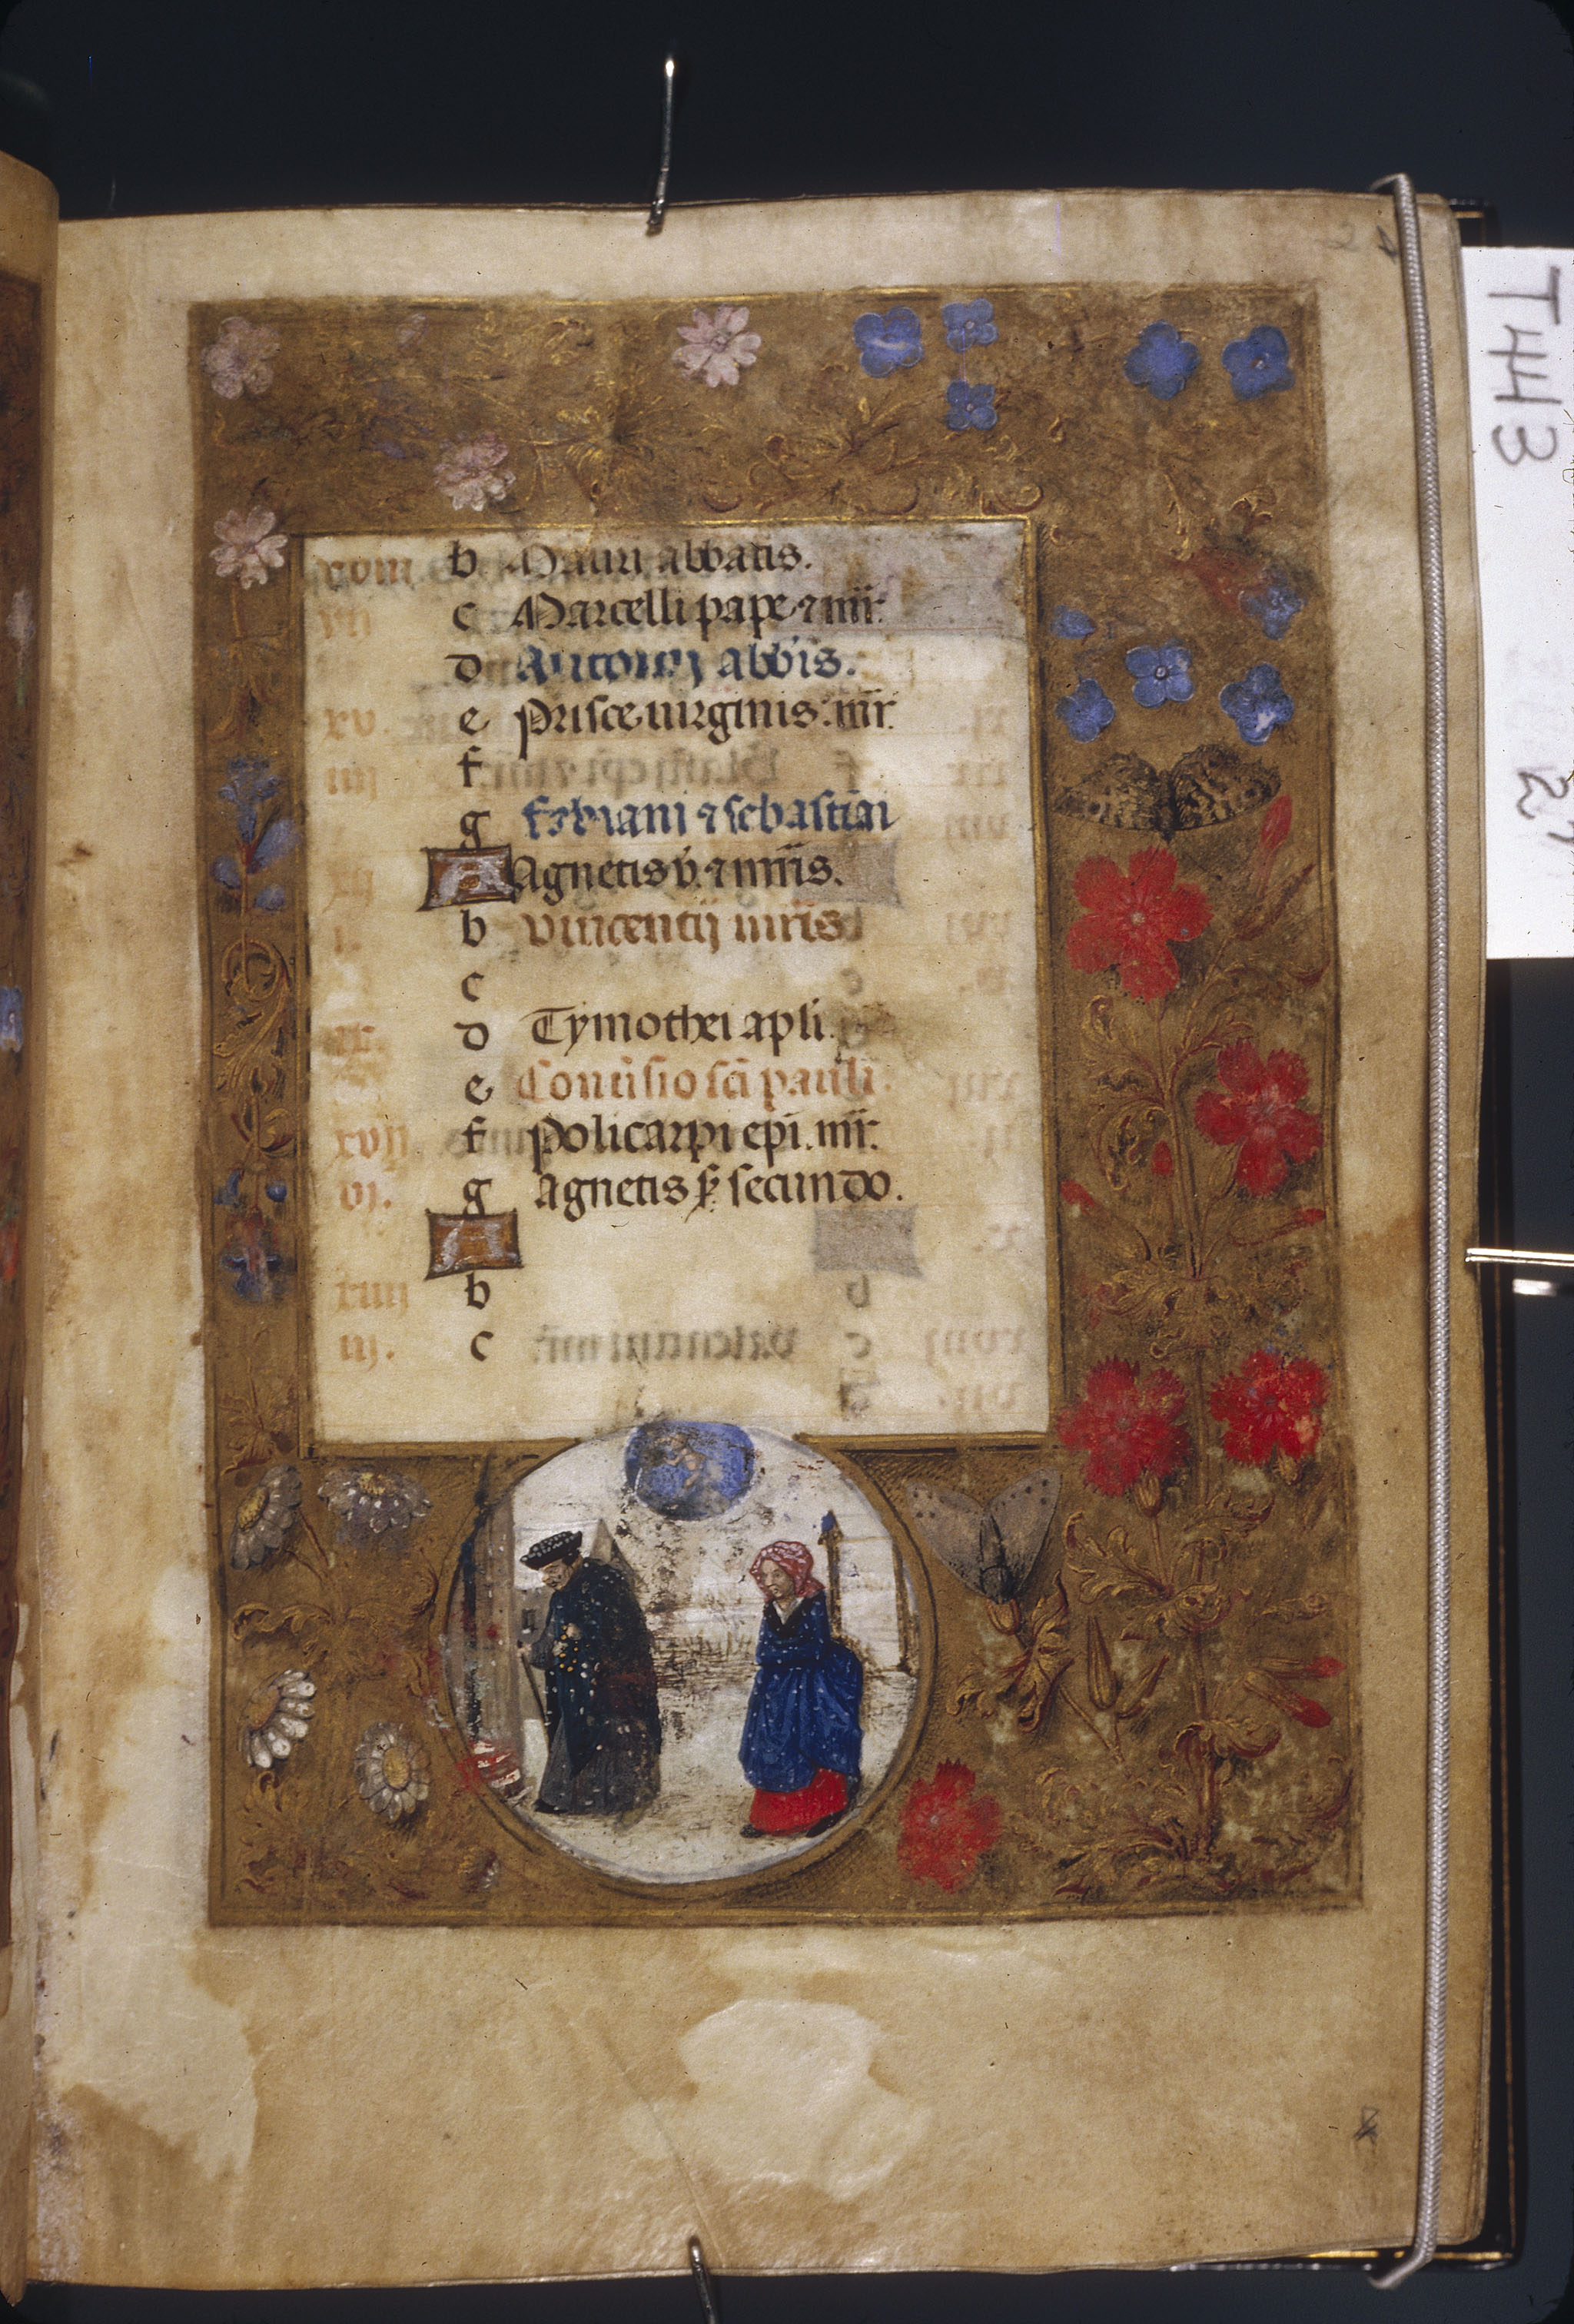 xviii b Mauri abbatis.
vii c Marcelli pape ⁊ mr̄.
d Antonij abb'is.
xv. e Prisce uirginis. mr̄.
iiij f
g Fabiani ⁊ sebastiai
xij A Agnetis v. ⁊ mr̄is.
i. b Vincentij mr̄is
c
ix. d Tymothei apl'i.
e Conu'sio sc̄i pauli.
xvij f Policarpi epi. mr̄.
vj. g Agnetis s̄ secundo.
A
xiiij b
iij. c
T443
27